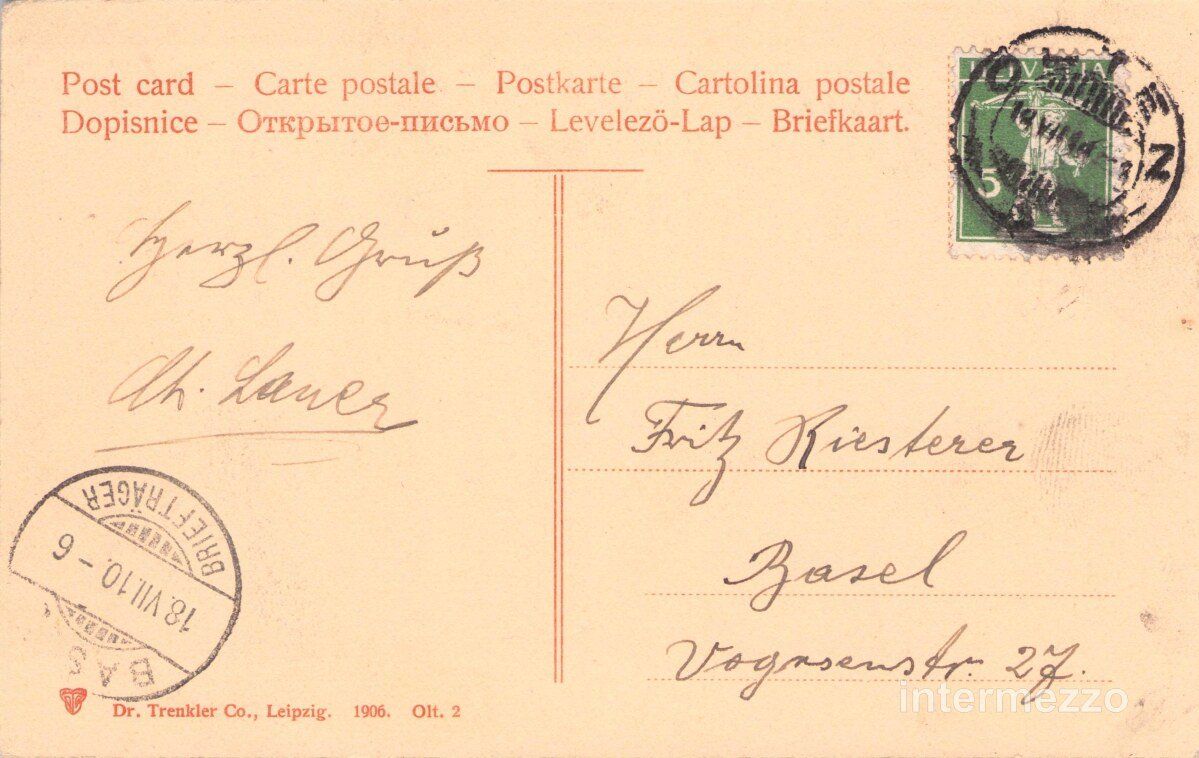 Post card – Carte postale – Postkarte – Cartolina postale
Dopisnice – Открытое-письмо – Levelező-Lap – Briefkaart.
HELVETIA
5
Herzl. Gruß
Ch. Lauer
Herrn
Fritz Riesterer
Basel
Vogesenstr. 27.
BRIEFTRÄGER
18.VII.10.–6
BAS
Dr. Trenkler Co., Leipzig. 1906. Olt. 2
intermezzo